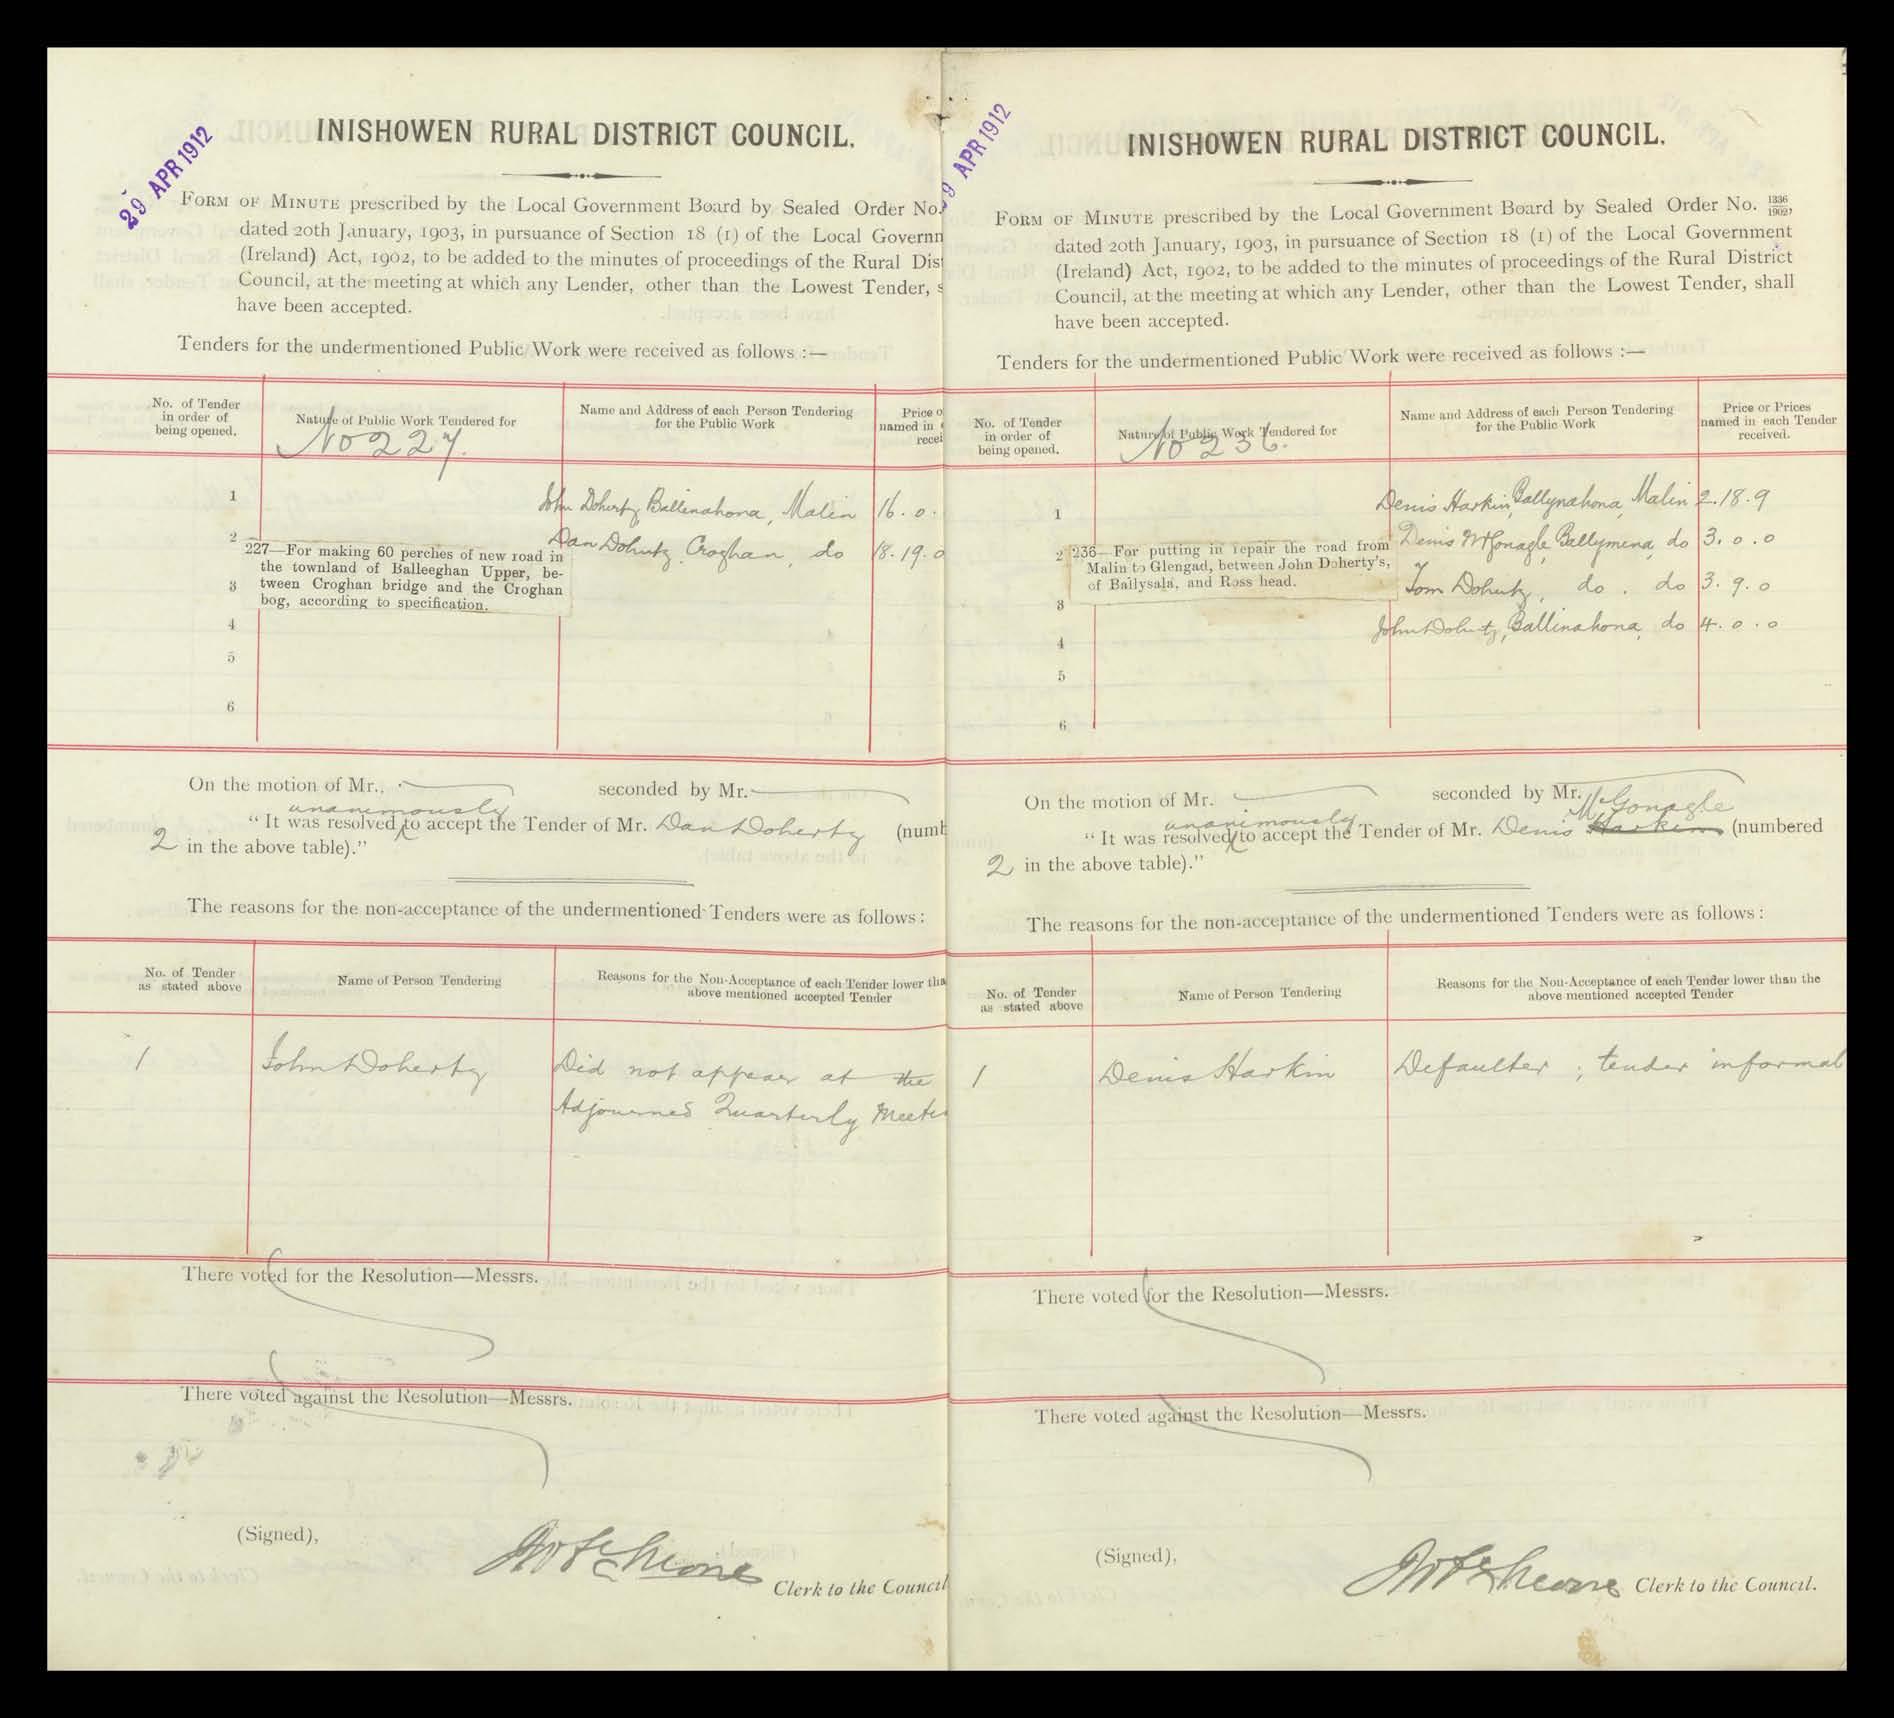 29 APR 1912
INISHOWEN RURAL DISTRICT COUNCIL.
FORM OF MINUTE prescribed by the Local Government Board by Sealed Order No.
dated 20th January, 1903, in pursuance of Section 18 (1) of the Local Governn
(Ireland) Act, 1902, to be added to the minutes of proceedings of the Rural Dis
Council, at the meeting at which any Lender, other than the Lowest Tender, s
have been accepted.
Tenders for the undermentioned Public Work were received as follows :—
No. of Tender
in order of
being opened.
Nature of Public Work Tendered for
No 227.
Name and Address of each Person Tendering
for the Public Work
Price o
named in
recei
1 John Doherty Ballinahona, Malin 16. 0.
2 Dan Doherty, Croghan, do 18. 19. 0
227—For making 60 perches of new road in
the townland of Balleeghan Upper, be-
tween Croghan bridge and the Croghan
bog, according to specification.
3
4
5
6
On the motion of Mr. seconded by Mr.
unanimously
"It was resolved to accept the Tender of Mr. Dan Doherty (numb
2 in the above table)."
The reasons for the non-acceptance of the undermentioned Tenders were as follows :
No. of Tender
as stated above
Name of Person Tendering
Reasons for the Non-Acceptance of each Tender lower tha
above mentioned accepted Tender
1 John Doherty Did not appear at the
Adjourned Quarterly Meetin
There voted for the Resolution—Messrs.
There voted against the Resolution—Messrs.
(Signed),
Clerk to the Council
9 APR 1912
INISHOWEN RURAL DISTRICT COUNCIL.
FORM OF MINUTE prescribed by the Local Government Board by Sealed Order No. 1336/1902,
dated 20th January, 1903, in pursuance of Section 18 (1) of the Local Government
(Ireland) Act, 1902, to be added to the minutes of proceedings of the Rural District
Council, at the meeting at which any Lender, other than the Lowest Tender, shall
have been accepted.
Tenders for the undermentioned Public Work were received as follows :—
No. of Tender
in order of
being opened.
Nature of Public Work Tendered for
No 236.
Name and Address of each Person Tendering
for the Public Work
Price or Prices
named in each Tender
received.
1 Denis Harkin, Ballynahona, Malin 2. 18. 9
2 Denis McGonagle, Ballymena, do 3. 0. 0
236—For putting in repair the road from
Malin to Glengad, between John Doherty's,
of Ballysala, and Ross head.
3 Tom Doherty, do. do 3. 9. 0
4 John Doherty, Ballinahona, do 4. 0. 0
5
6
On the motion of Mr. seconded by Mr.
unanimously McGonagle
"It was resolved to accept the Tender of Mr. Denis Harkin (numbered
2 in the above table)."
The reasons for the non-acceptance of the undermentioned Tenders were as follows :
No. of Tender
as stated above
Name of Person Tendering
Reasons for the Non-Acceptance of each Tender lower than the
above mentioned accepted Tender
1 Denis Harkin Defaulter ; tender informal
There voted for the Resolution—Messrs.
There voted against the Resolution—Messrs.
(Signed),
Clerk to the Council.